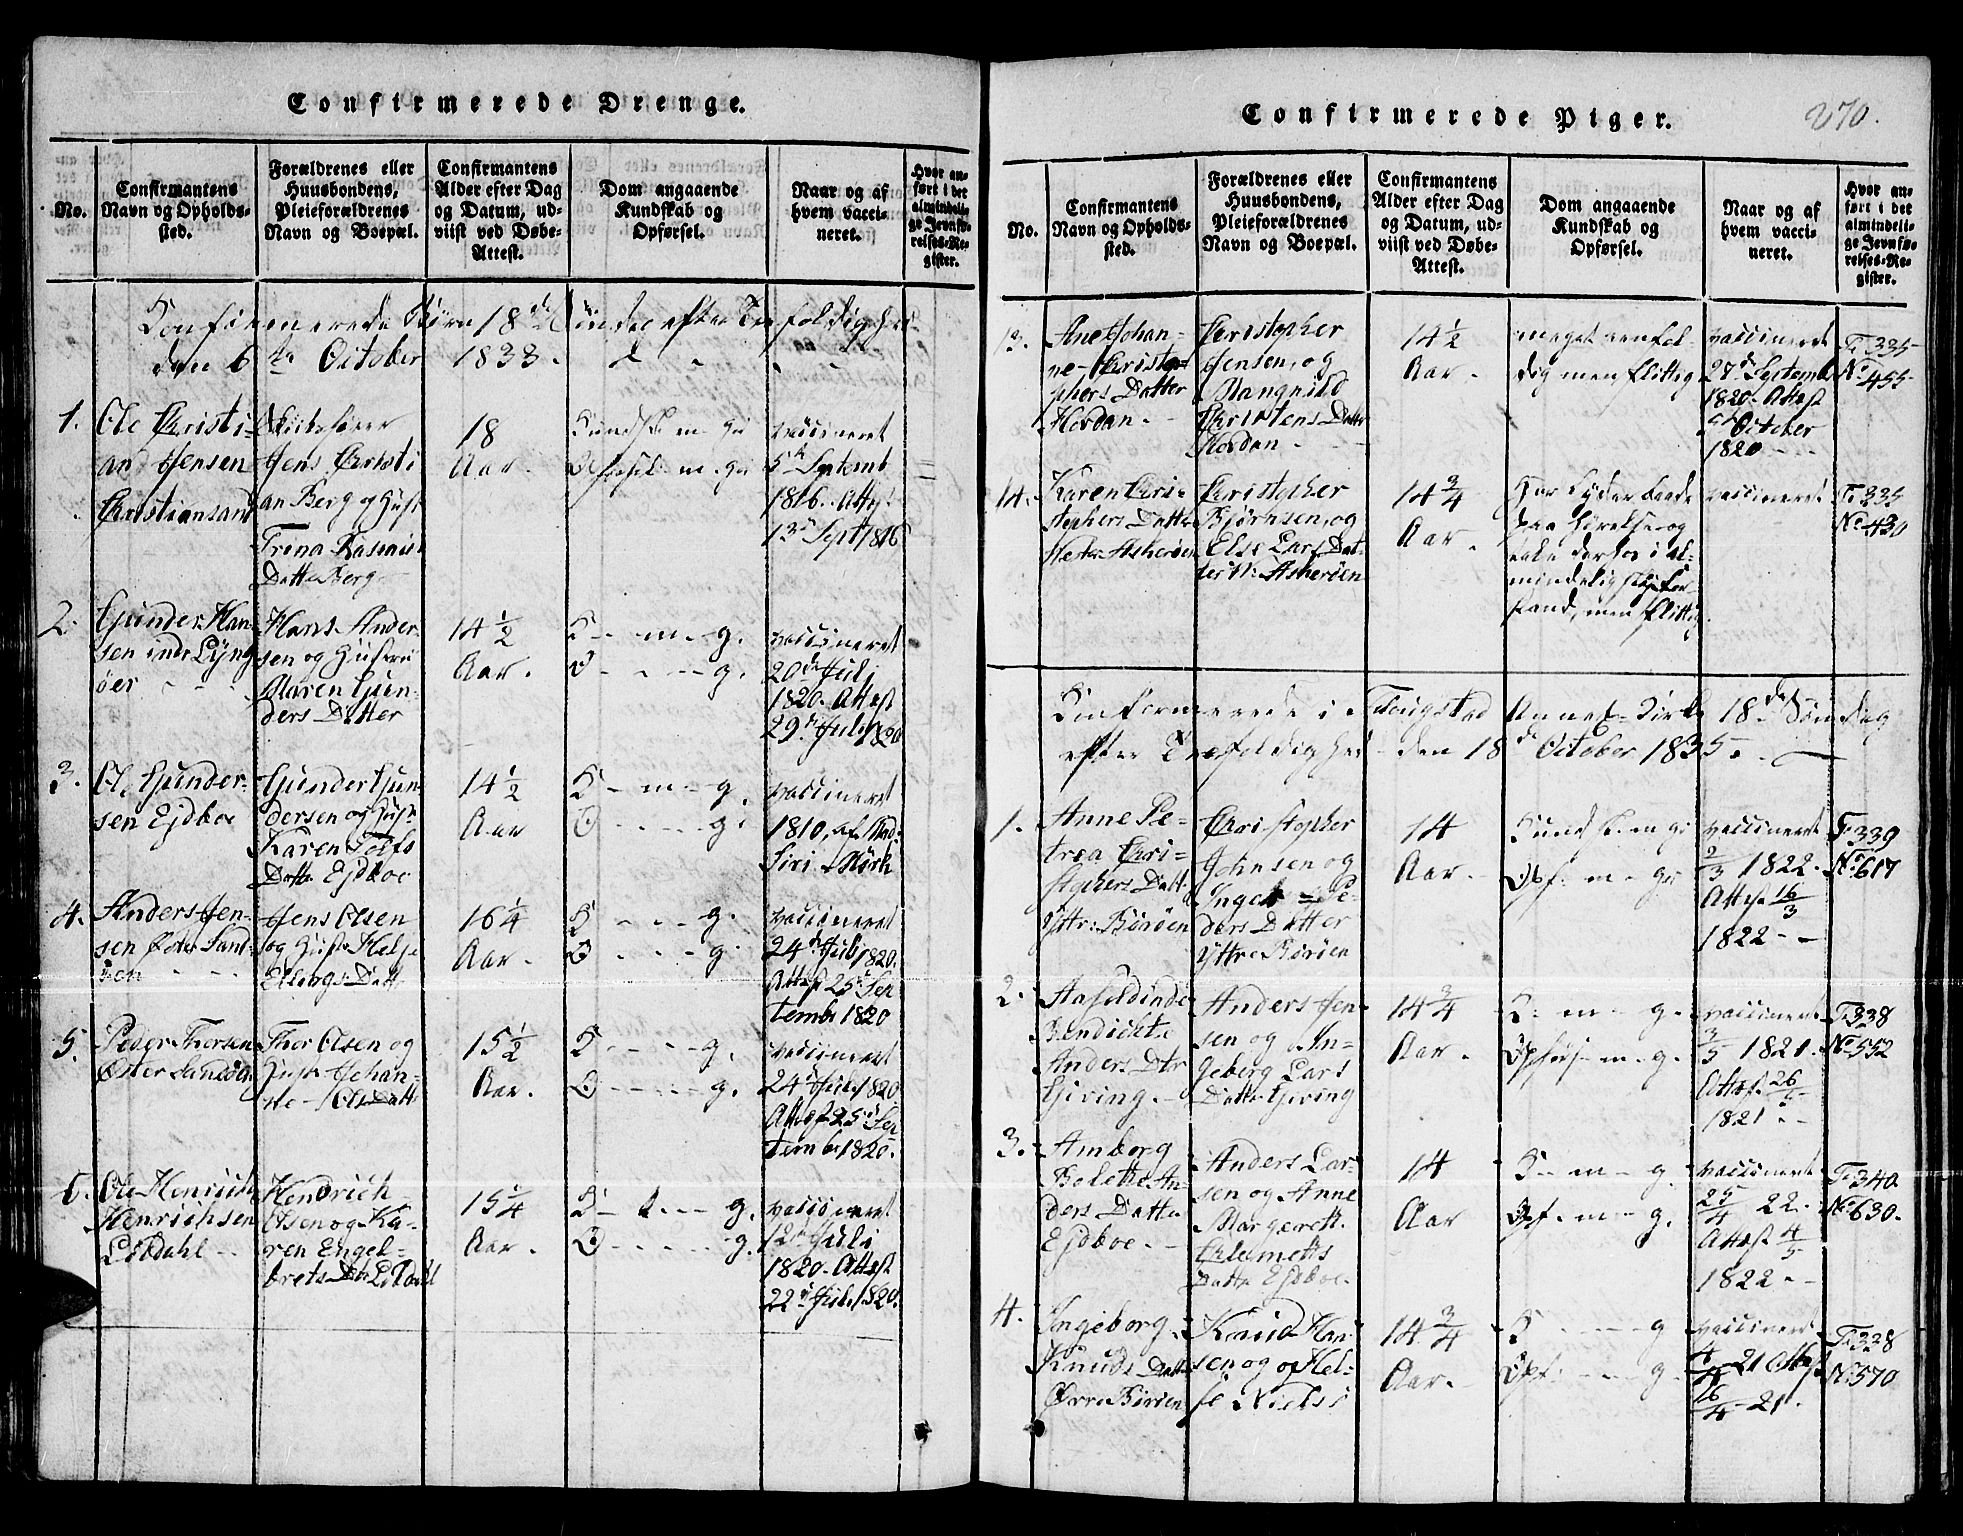 Confirmerede Drenge.
No.
Confirmantens
Navn og Opholds-
sted.
Forældrenes eller
Huusbondens,
Pleieforældrenes
Navn og Boepæl.
Confirmantens
Alder efter Dag
og Datum, ud-
viist ved Døbe-
Attest.
Dom angaaende
Kundskab og
Opførsel.
Naar og af
hvem vacci-
neret.
Hvor an-
ført i det
almindeli-
ge Jevnfø-
relses-Re-
gister.
Confirmerede Børn 18de Søndag efter Trefoldighed
den 6te October 1833.
1.
Ole Christi-
and Jensen
Christiansand
Jens Christi
an Berg og Hust
Trena Rasmus
Datter Berg
18
Aar.
vaccineret
5te Septemb
1816. Attest
13de Sept 1816
2.
Gunder Han-
sen indr Lyng
öer
Hans Ander-
sen og Hustru
Maren Gun-
ders Datter
14 1/2
Aar.
K - - m - g.
O - - - - g.
vaccineret
20de Juli
1820. Attest
29de Juli 1820
3.
Ole Gunder-
sen Ejdboe
Gunder Gun-
dersen og Hust
Karen Tolfs
Datter Ejdboe
14 1/2
Aar
K - m - g.
O - - - - g.
vaccineret
1810, af Mad
Siri Mörk
4.
Anders Jen-
sen Sand-
öen
Jens Olsen
og Hustr Helje
Ellevgs Datt
16 1/4
Aar.
K - - - g.
O - - - g.
vaccineret
24de Juli 1820.
Attest 25de Sep
tembr 1820
5.
Peder Thorsen
Öster Sandöen
Thor Olsen og
Hustr Johan-
ne Ols Datt
15 1/2
Aar.
K - - - - g.
O - - - - - g.
vaccineret
24de Juli 1820.
Attest 25de Sep
tembr 1820.
6.
Ole Henrich
Henrichsen
Lildahl
Hendrich
Olsen og Ka-
ren Engel-
brets Dtr Lildahl
15 1/4
Aar.
K - t. - - g.
O - - - - - g.
vaccineret
12de Juli
1820. Attest
22de Juli 1820.
Confirmerede Piger.
270.
No.
Confirmantens
Navn og Opholds-
sted.
Forældrenes eller
Huusbondens,
Pleieforældrenes
Navn og Boepæl.
Confirmantens
Alder efter Dag
og Datum, ud-
viist ved Døbe-
Attest.
Dom angaaende
Kundskab og
Opførsel.
Naar og af
hvem vacci-
neret.
Hvor an-
ført i det
almindeli-
ge Jevnfø-
relses-Re-
gister.
13.
Ane Johan-
ne Christo-
phers Datter
Hovdan
Christopher
Jensen, og
Mangnild
Christens Datter
Hovdan
14 1/2
Aar.
meget eenfol-
dig men flittig
vaccineret
27de Septemb
1820. Attest
October
1820
F: 335
No 455
14.
Karen Chri-
stophers Datter
Nedr: Askeröen
Christopher
Björnsen, og
Else Lars Dat-
ter N: Askeröen
14 3/4
Aar.
Har Lyder baade
paa hörelse og
men flittig.
vaccineret
F: 335
No 430
Confirmerede i Flougstad Annex-Kirke 18de Søndag
efter Trefoldighed den 18de October 1835.
1.
Anne Pe-
trea Chri-
stophers Datt.
Yttr: Boröen
Christopher
Johnsen og
Ingeb: Pe-
ders Datter
Yttre Boröen
14
Aar.
Kundsk. m g.
Opf: m - g.
vaccineret
2/3 1822.
Attest 16/3
1822
F: 339
No 617
2.
Bendickte
Anders Dtr
Gjeving.
Anders Jen-
sen og In-
geberg Lars
Datter Gjeving
14 3/4
Aar.
K: - m - g.
Opförs - m - g.
vaccineret
3/5 1821.
Attest 26/5
1821
F: 338
No 552
3.
Amborg
Bolette An-
ders Datter
Ejdboe.
Anders Lar-
sen og Anne
Margerett.
Clemets
Datter Ejdboe.
14
Aar
K - m - g.
Opf. - m - g.
vaccineret
25/4 22.
Attest 4/5
1822
F: 340
No 630.
4.
Ingeborg
Knuds Datt
Övre Böröen
Knud Han
sen og Hel-
je Niels
14 3/4
Aar.
K - - - - g
Opf: - - - g.
vaccineret
21 Attest
16/4 21.
F: 338
No 570